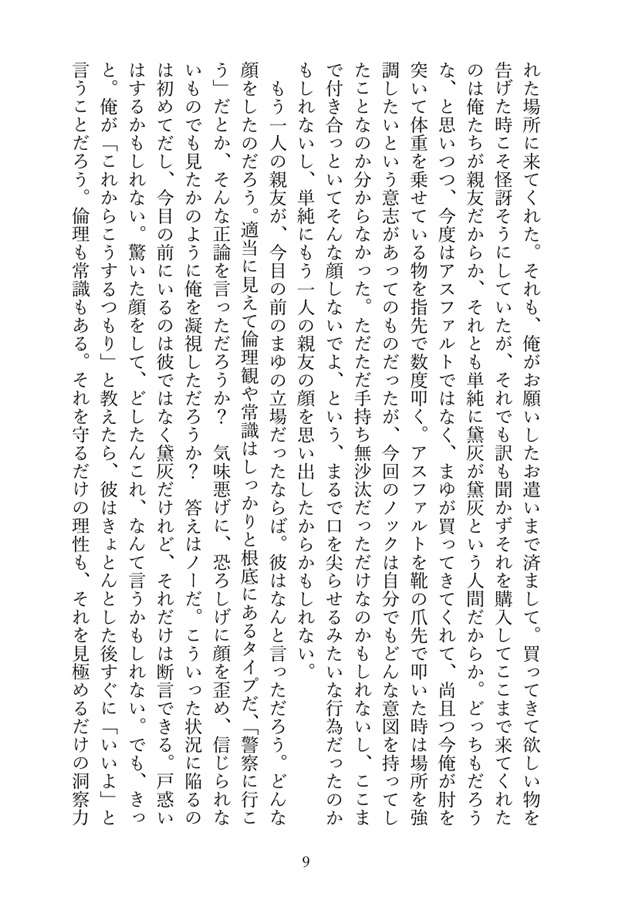 れた場所に来てくれた。それも、俺がお願いしたお遣いまで済まして。買ってきて欲しい物を
告げた時こそ怪訝そうにしていたが、それでも訳も聞かずそれを購入してここまで来てくれた
のは俺たちが親友だからか、それとも単純に黛灰が黛灰という人間だからか。どっちもだろう
な、と思いつつ、今度はアスファルトではなく、まゆが買ってきてくれて、尚且つ今俺が肘を
突いて体重を乗せている物を指先で数度叩く。アスファルトを靴の爪先で叩いた時は場所を強
調したいという意志があってのものだったが、今回のノックは自分でもどんな意図を持ってし
たことなのか分からなかった。ただただ手持ち無沙汰だっただけなのかもしれないし、ここま
で付き合っといてそんな顔しないでよ、という、まるで口を尖らせるみたいな行為だったのか
もしれないし、単純にもう一人の親友の顔を思い出したからかもしれない。
　もう一人の親友が、今目の前のまゆの立場だったならば。彼はなんと言っただろう。どんな
顔をしたのだろう。適当に見えて倫理観や常識はしっかりと根底にあるタイプだ、「警察に行こ
う」だとか、そんな正論を言っただろうか？　気味悪げに、恐ろしげに顔を歪め、信じられな
いものでも見たかのように俺を凝視しただろうか？　答えはノーだ。こういった状況に陥るの
は初めてだし、今目の前にいるのは彼ではなく黛灰だけれど、それだけは断言できる。戸惑い
はするかもしれない。驚いた顔をして、どしたんこれ、なんて言うかもしれない。でも、きっ
と。俺が「これからこうするつもり」と教えたら、彼はきょとんとした後すぐに「いいよ」と
言うことだろう。倫理も常識もある。それを守るだけの理性も、それを見極めるだけの洞察力
9